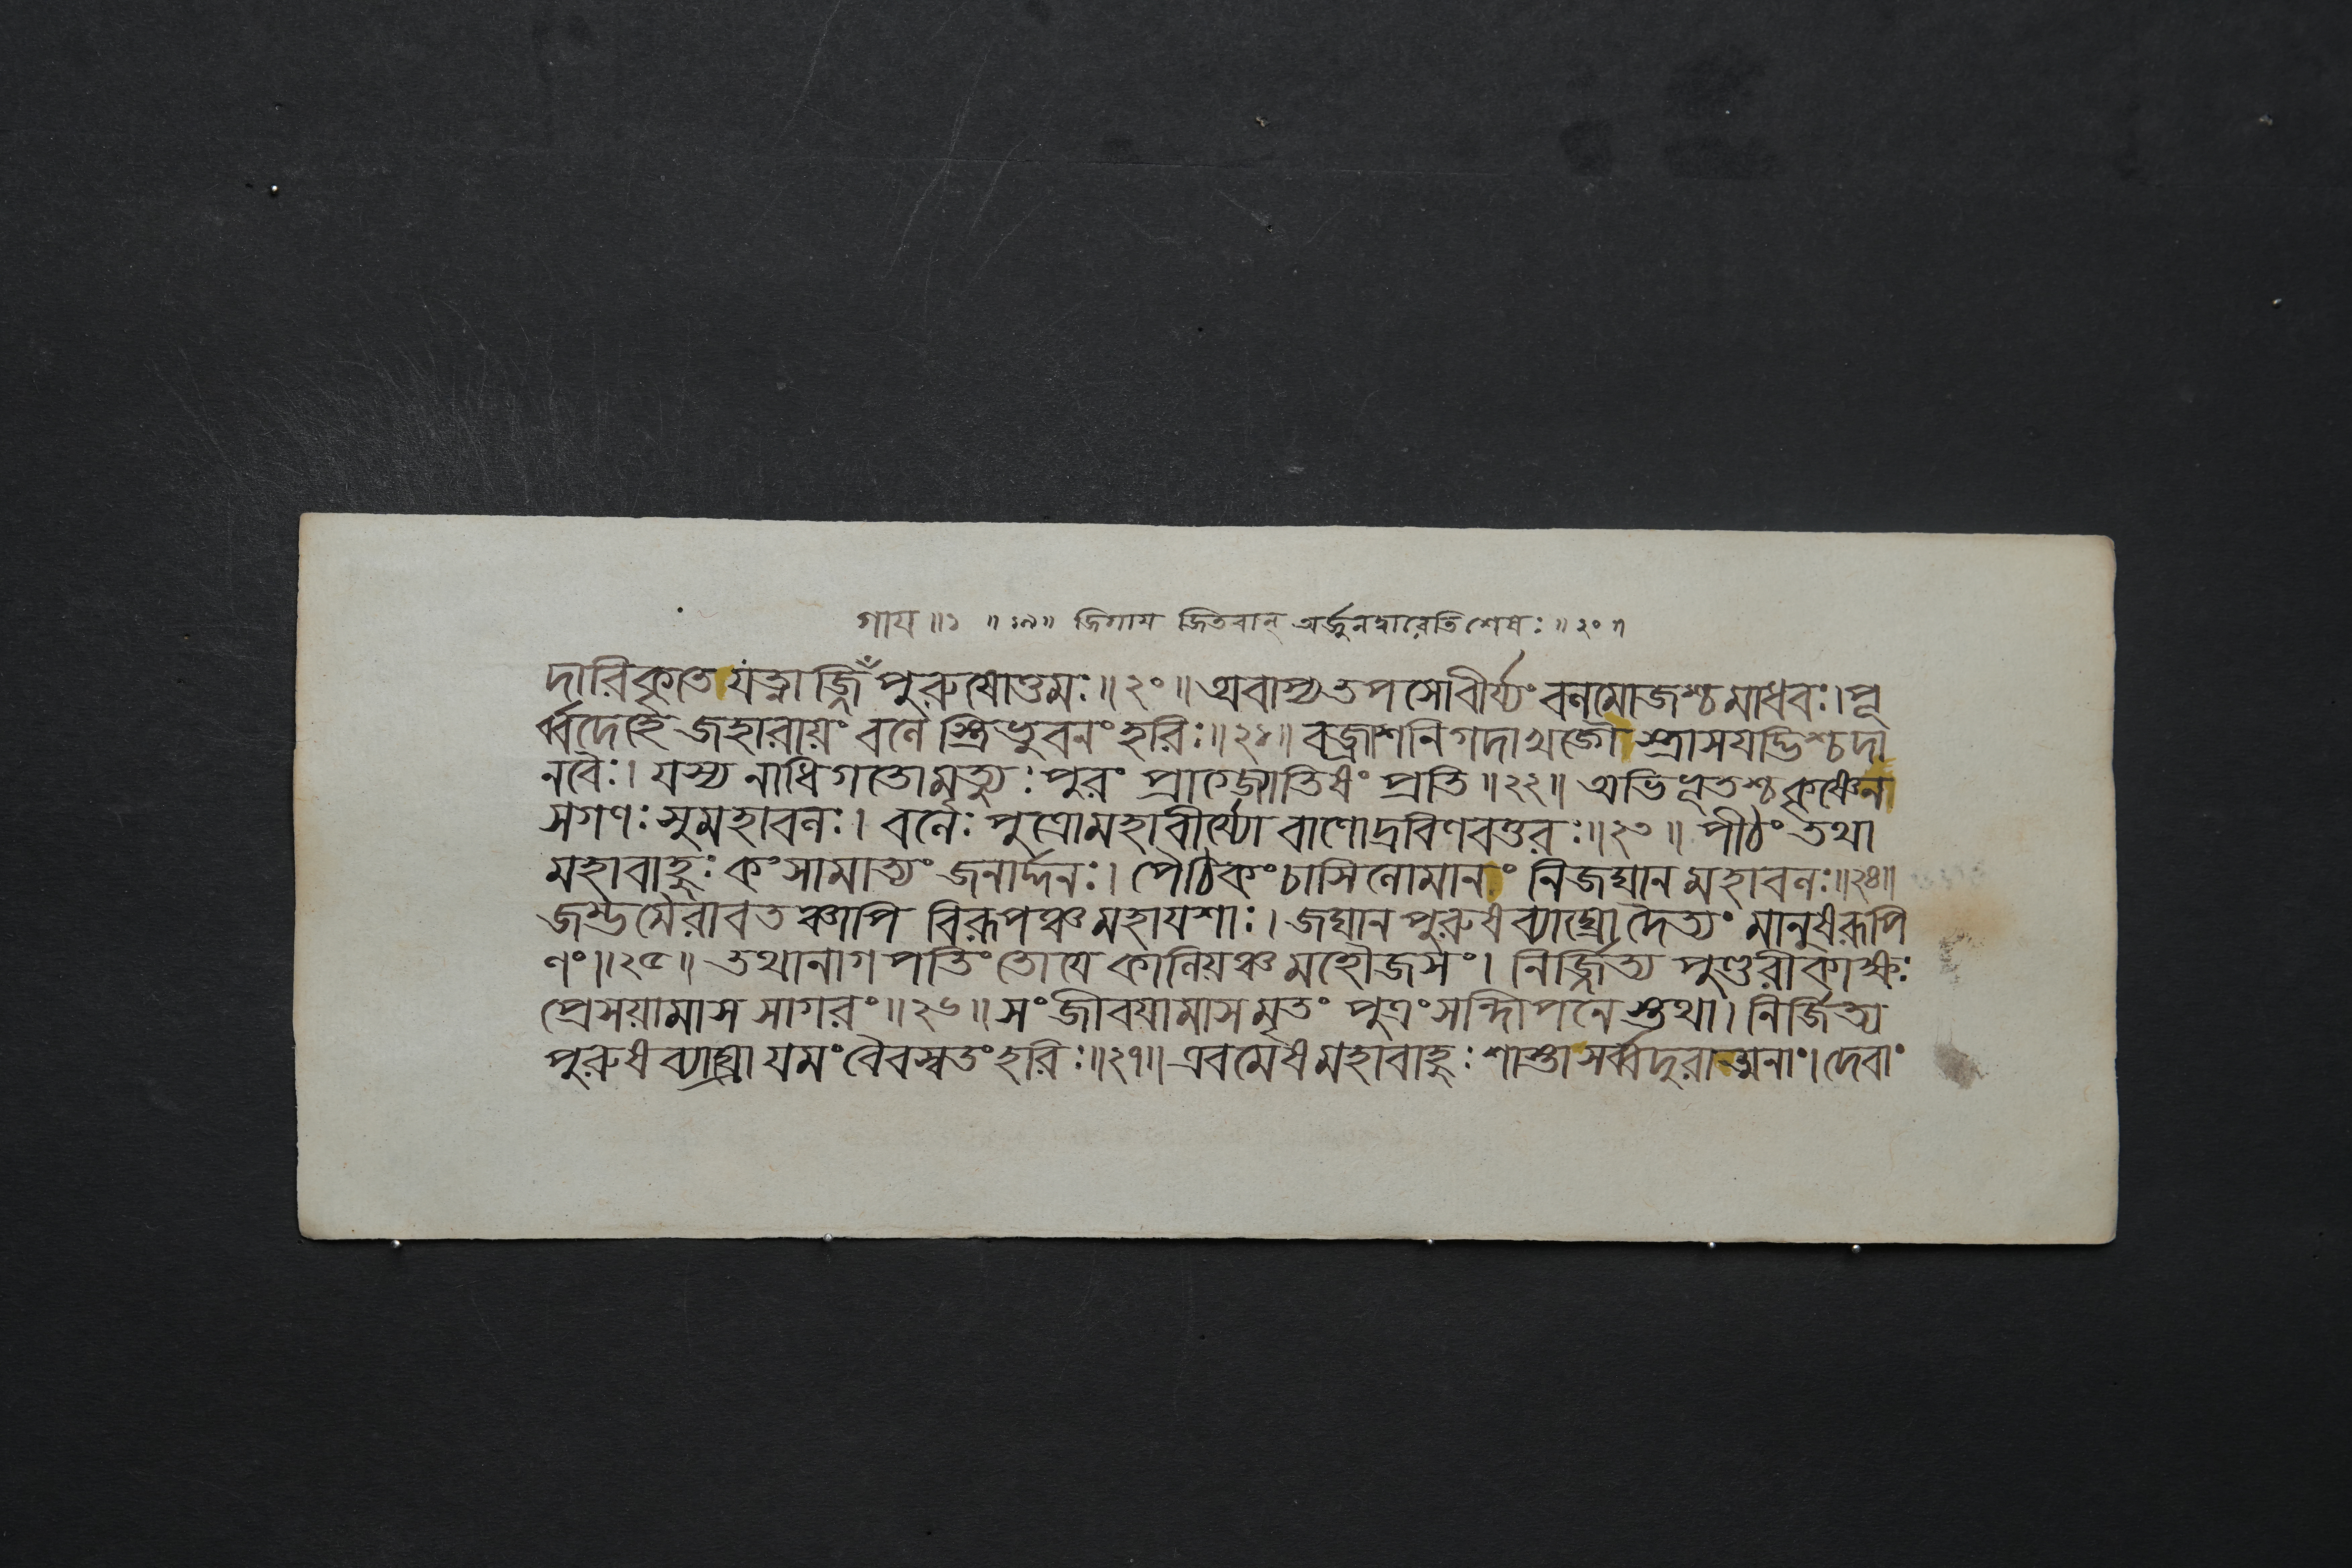 গায ॥১ ॥১৯॥ জিগায জিতবান্ অর্জুনদ্বারেতিশেষঃ॥২০॥
দারিকৃতে যত্নাজ্জিঁ পুরুষোত্তমঃ॥২০॥ অবাপ্য তপসোবীর্য্যং বলমোজশ্চ মাধবঃ। পূ
র্ব্বদেহে জহারায়ং বলে স্ত্রিভুবনং হরিঃ॥২১॥ বজ্রাশনিগদাখড্গৈ স্ত্রাসযদ্ভিশ্চ দা
নবৈঃ। যস্য নাধিগতোমৃত্যুঃ পুরং প্রাগ্জ্যোতিষং প্রতি॥২২॥ অভিভূতশ্চ কৃষ্ণেন
সগণঃ সুমহাবলঃ। বলেঃ পুত্রোমহাবীর্য্যো বাণোদ্রবিণবত্তরঃ॥২৩॥ পীঠং তথা
মহাবাহুঃ কংসামাত্যং জনার্দ্দনঃ। পৈঠিকং চাসিলোমানং নিজঘান মহাবলঃ॥২৪॥
জম্ভমৈরাবতঞ্চাপি বিরূপঞ্চ মহাযশাঃ। জঘান পুরুষব্যাঘ্রো দৈত্যং মানুষরূপি
ণং॥২৫॥ তথানাগপতিং তোযে কালিয়ঞ্চ মহৌজসং। নির্জ্জিত্য পুণ্ডরীকাক্ষঃ
প্রেসয়ামাস সাগরং॥২৬॥ সংজীবযামাস মৃতং পুত্রং সন্দিপনে স্তথা। নির্জিত্য
পুরুষব্যাঘ্রো যমং বৈবস্বতং হরিঃ॥২৭॥ এবমেষ মহাবাহুঃ শাস্তা সর্ব্বদুরাত্মনাং। দেবা